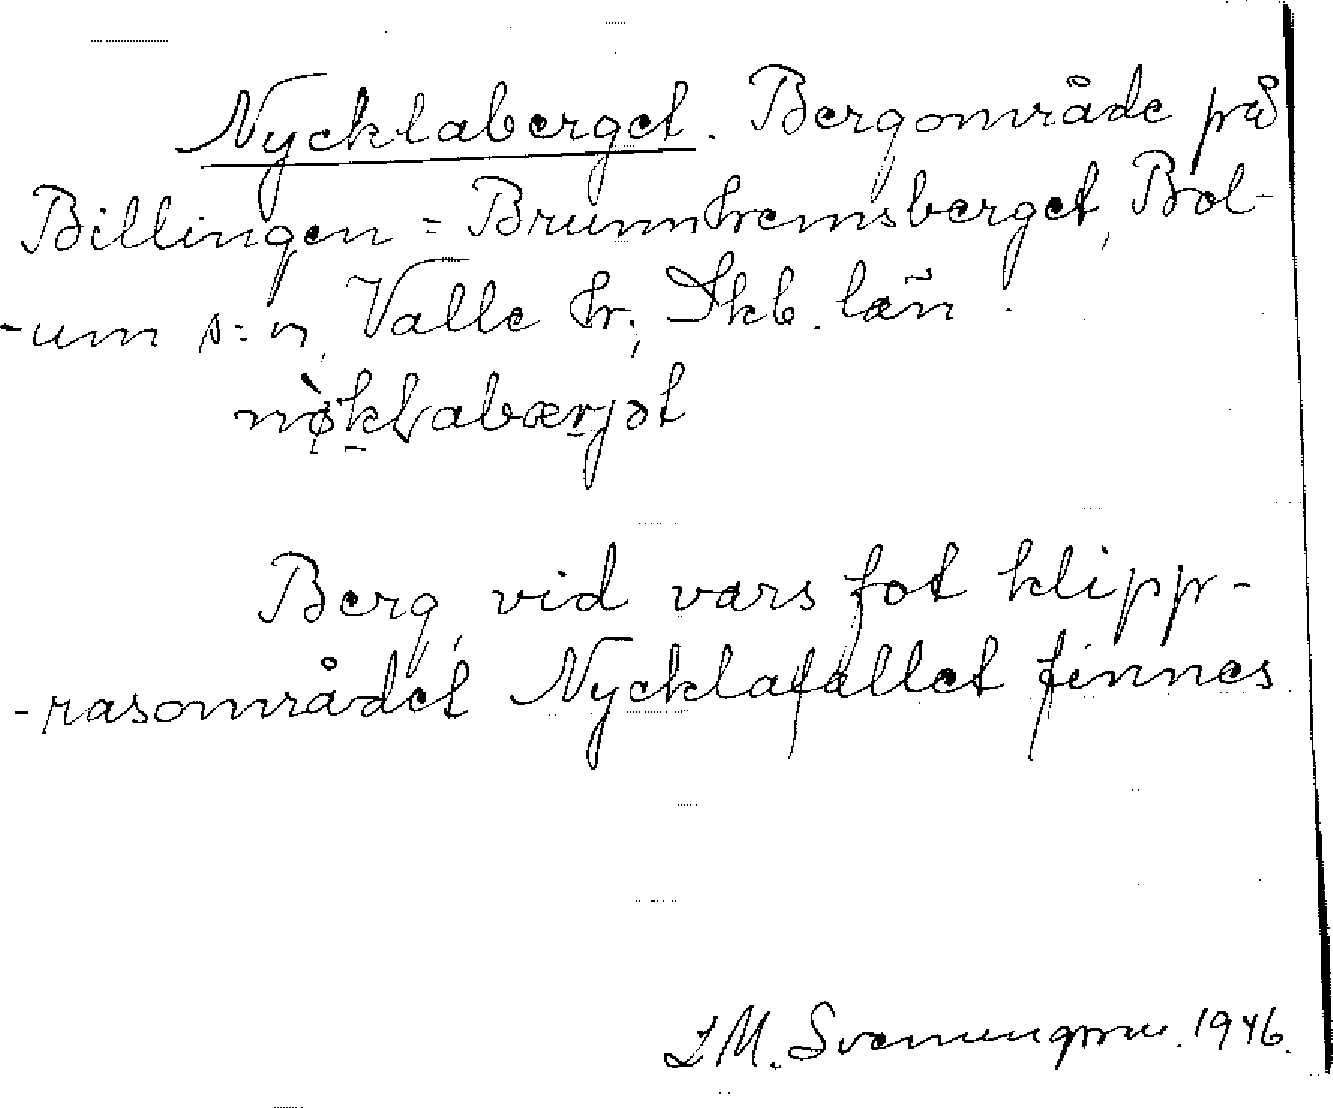 Nycklaberget. Bergområde på
Billingen = Brunnhemsberget, Bol-
-um s:n, Valle hr, Skb. län.
nø̀klabærjət
Berg, vid vars fot klipp-
-rasområdet Nycklafallet finnes
Svenungsson. 1946.